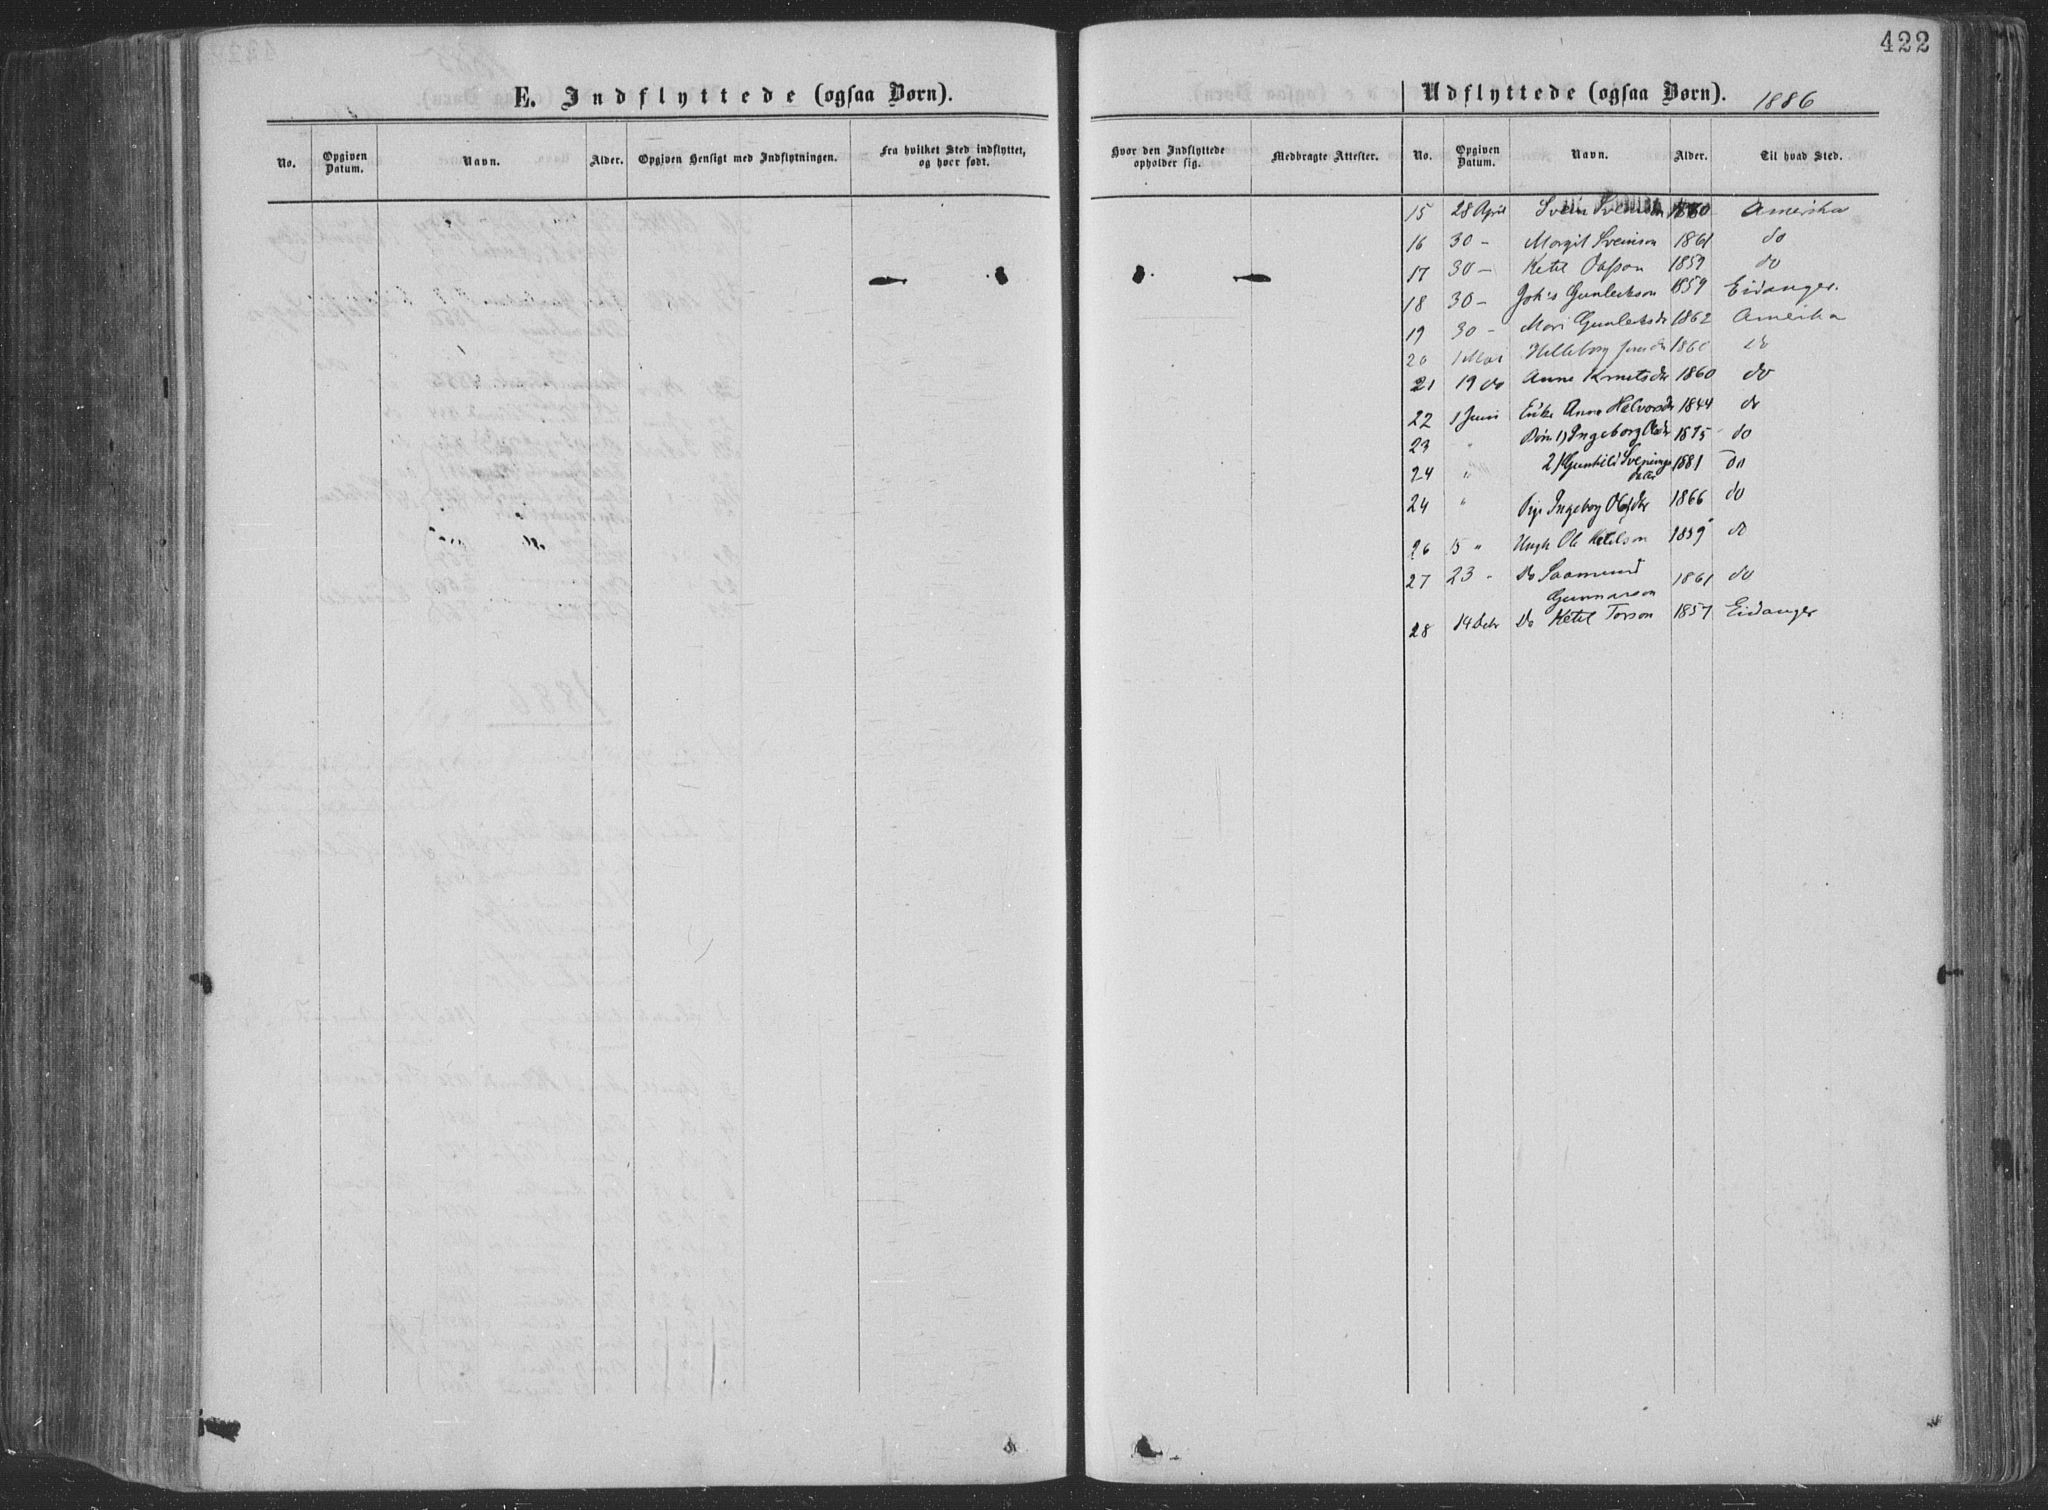 422
E. Indflyttede (ogsaa Børn).
Udflyttede (ogsaa Børn). 1886
No. Opgiven Datum. Navn. Alder. Opgiven Hensigt med Indflytningen. Fra hvilket Sted indflyttet, og hvor født.
Hvor den Indflyttede opholder sig. Medbragte Attester. No. Opgiven Datum. Navn. Alder. Til hvad Sted.
15 28 April Svein Sveinson 1860 Amerika
16 30 – Margit Sveinson 1861 do
17 30 – Ketel 1859 do
18 30 – Johs Gunleikson 1859 Eidanger.
19 30 – Mari Gunleiksdr 1862 Amerika
20 1 Mai Helleborg 1860 do
21 19 do Anne Knutsdr 1860 do
22 1 Juni Enke Anne Halvorsdr 1844 do
23 " Børn 1) Ingeborg 1875 do
24 " 2) Gunhild Svenings
datter 1881 do
24 " Pige Ingeborg Olsdr 1866 do
26 15 " Ungk Ole Ketelson 1859 do
27 23 " Do Saamund
Gunnarson 1861 do
28 14 Decbr Do Ketel Torson 1857 Eidanger
1886